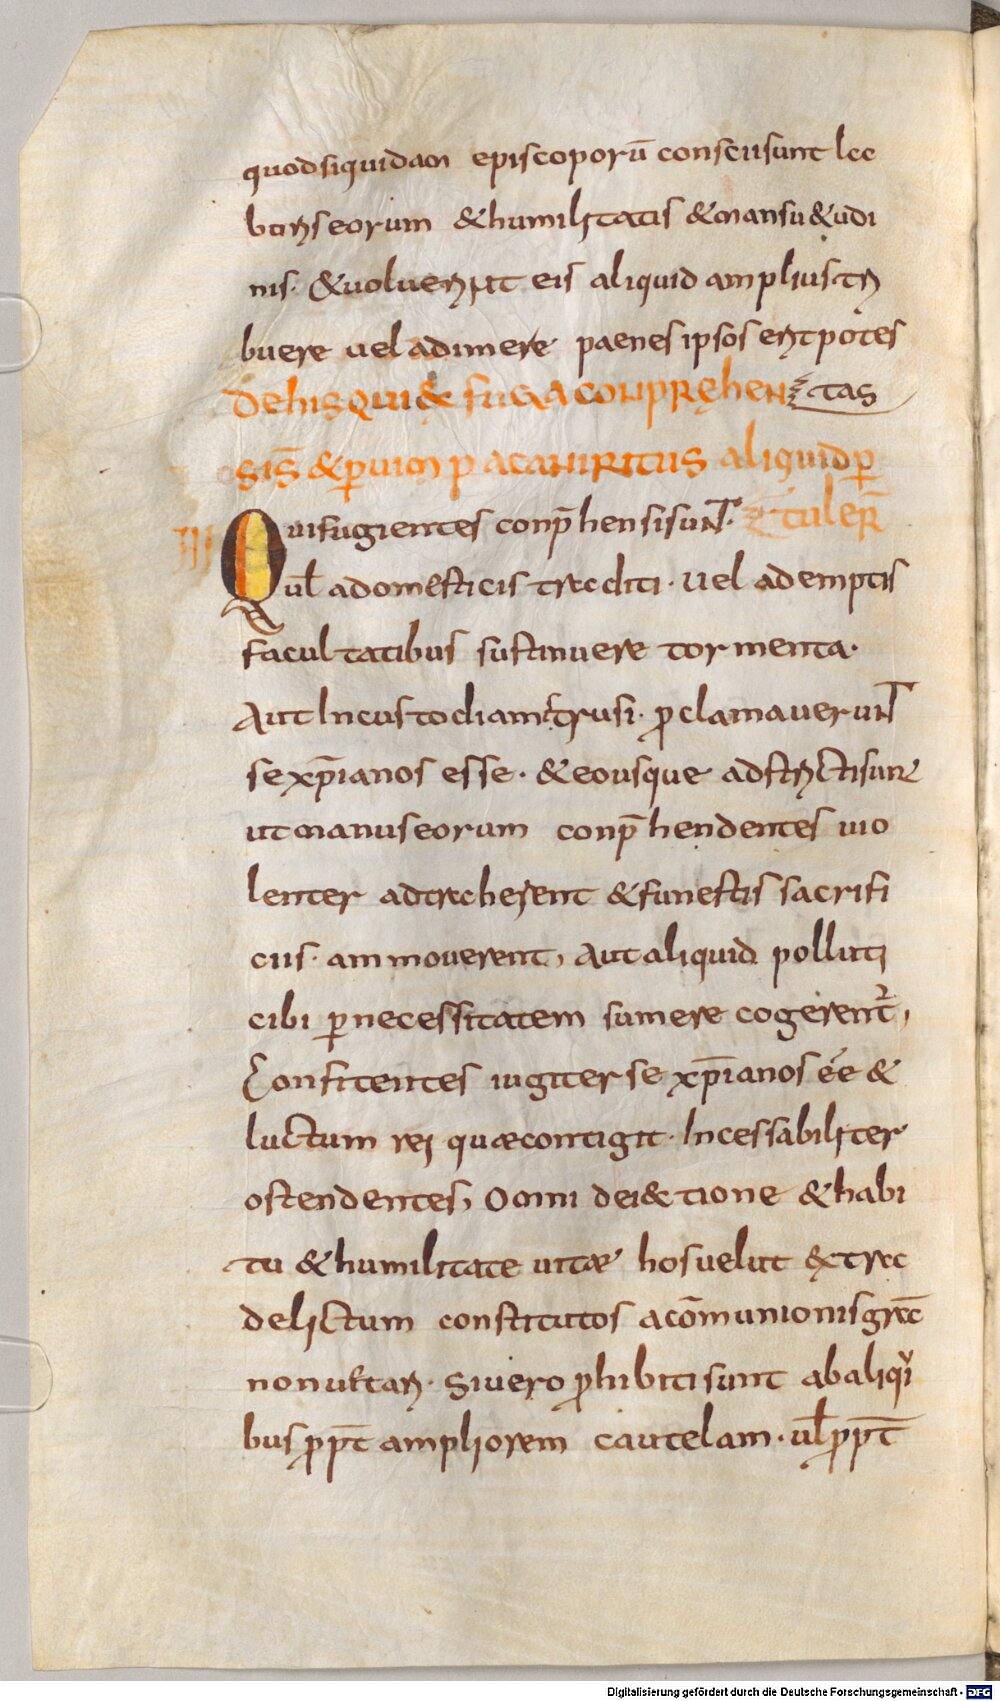 quodsiquidam episcoporū conscii sunt la
boris eorum & humilitatis & mansu&udi
nis· & voluerint eis aliquid amplius tri
buere vel adimere paenes ipsos erit potes
tas
De his qui & fuga conpręhen
sis & ꝑ vim pacanir ritus aliquid ꝑ
tuler̄
III Qui fugientes conp̄hensi sunt·
ul̄ a domesticis traditi· vel ademptis
facultatibus sustinuere tormenta·
Aut In custodiam trusi· ꝓclamaverunt
se xp̄ianos esse· & eousque adstricti sunt
ut manus eorum conp̄hendentes vio
lenter adtraherent & funestis sacrifi
ciis· ammoverent, Aut aliquid polluti
cibi ꝑ necessitatem sumere cogerent᷑,
Confitentes iugiter se xp̄ianos ee &
luctum rei quae contigit· Incessabiliter
ostendentes, Omni dei&tione & habi
tu & humilitate vitae hos velut extra
delictum constitutos a cōmunionis gra
non vetari· Si vero ꝓhibiti sunt ab aliqui
bus ꝓpt̄ ampliorem cautelam· ul̄ ꝓpt̄
Digitalisierung gefördert durch die Deutsche Forschungsgemeinschaft - DFG